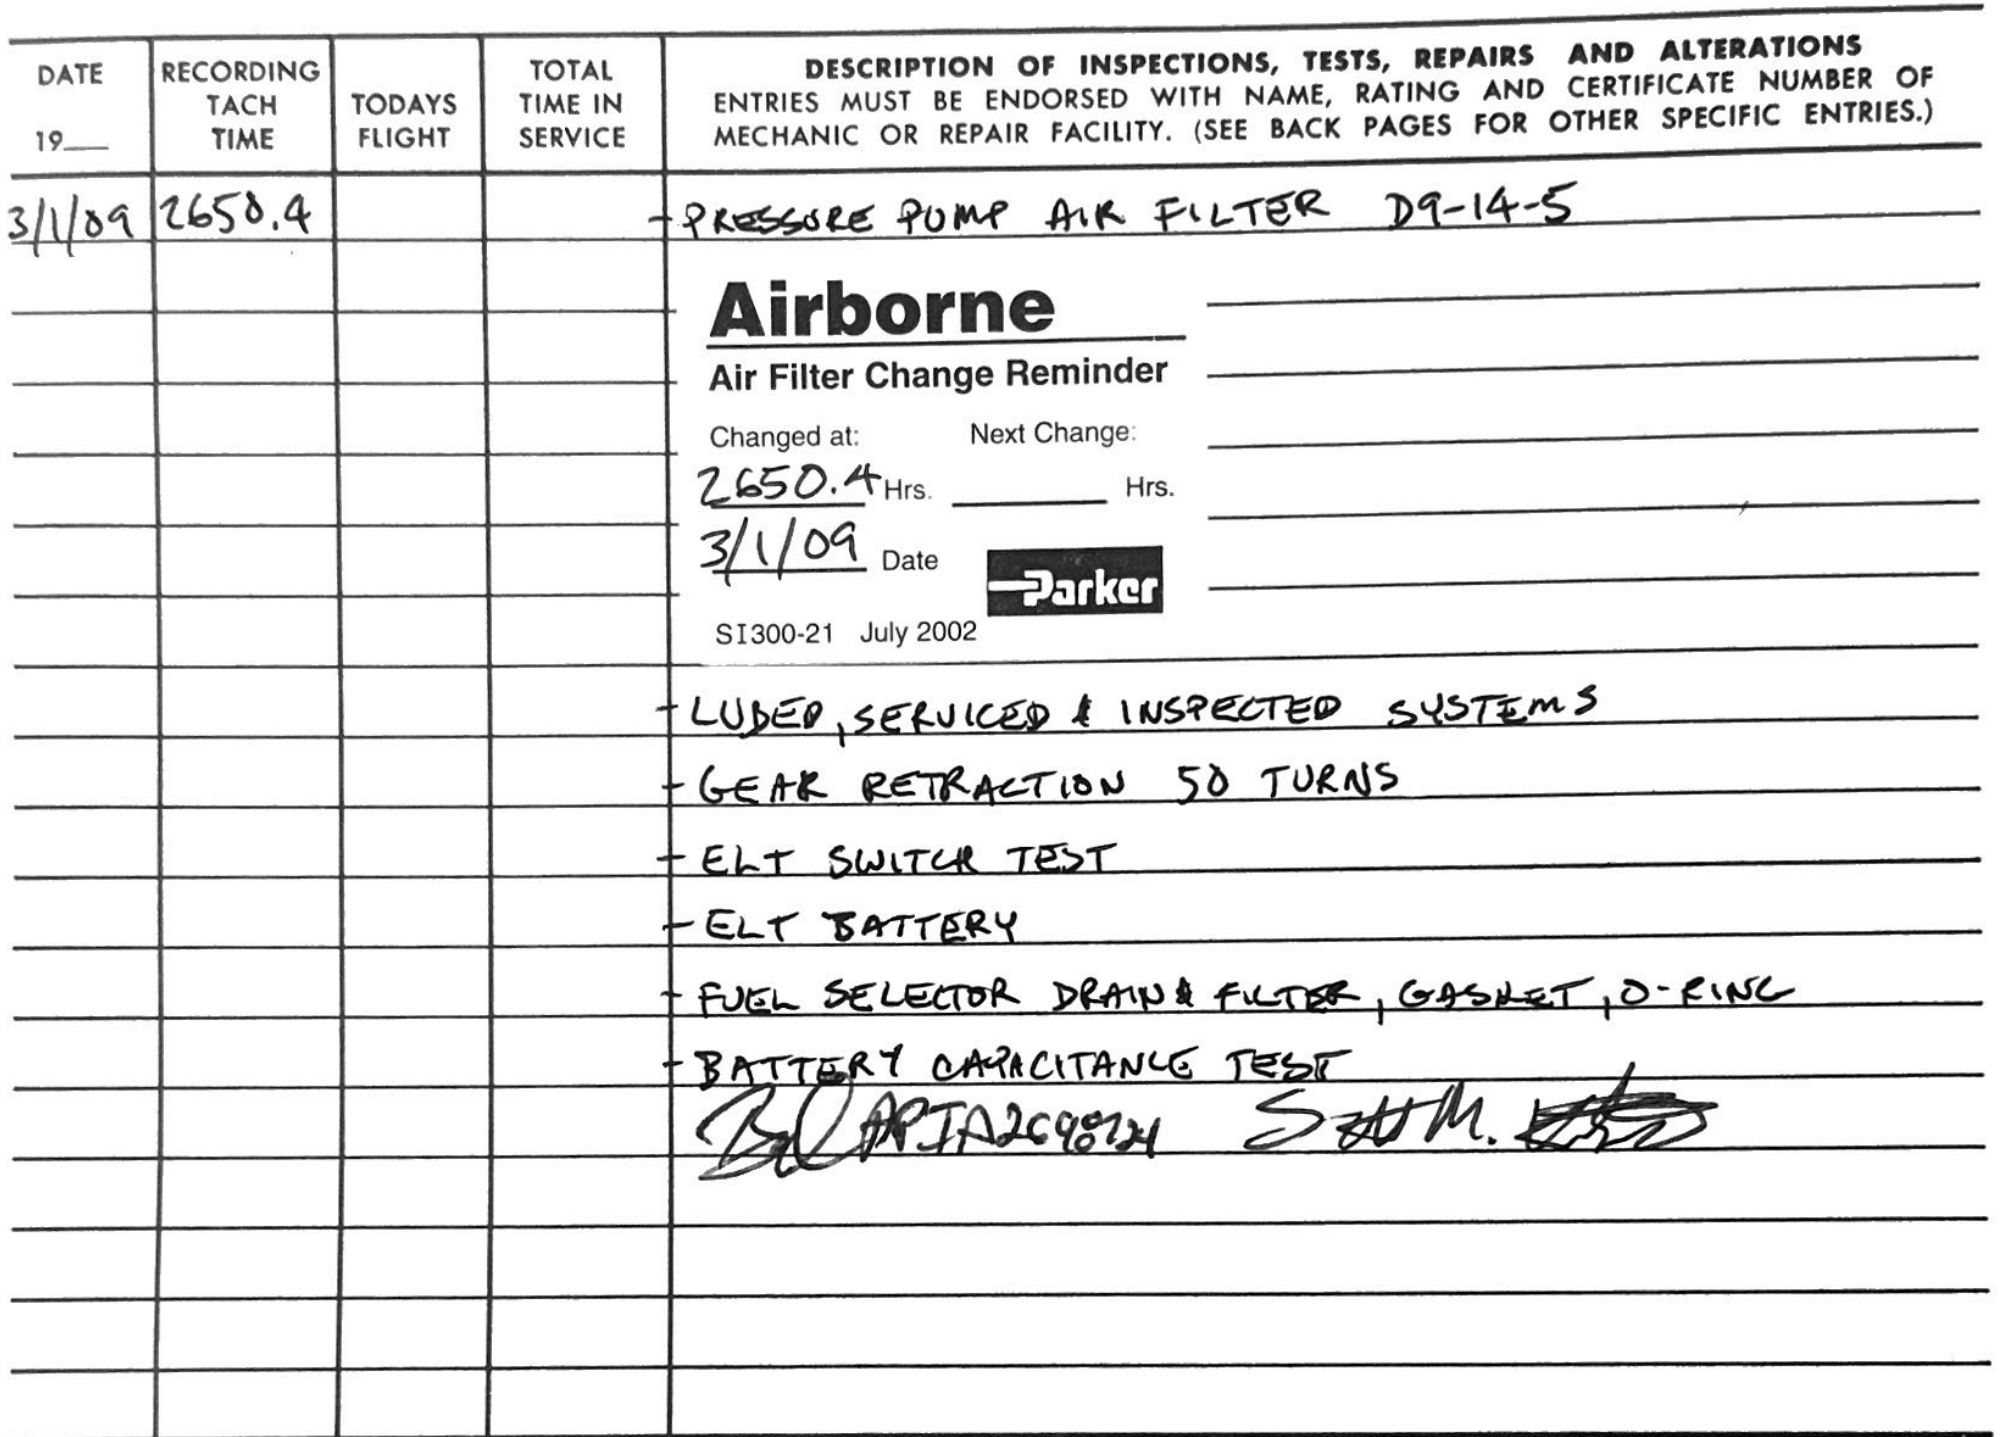 DATE
19__
RECORDING
TACH
TIME
TODAYS
FLIGHT
TOTAL
TIME IN
SERVICE
DESCRIPTION OF INSPECTIONS, TESTS, REPAIRS AND ALTERATIONS
ENTRIES MUST BE ENDORSED WITH NAME, RATING AND CERTIFICATE NUMBER OF
MECHANIC OR REPAIR FACILITY. (SEE BACK PAGES FOR OTHER SPECIFIC ENTRIES.)
3/1/09 2650.4 - PRESSURE PUMP AIR FILTER D9-14-5
Airborne
Air Filter Change Reminder
Changed at: Next Change:
2650.4 Hrs. ______ Hrs.
3/1/09 Date
Parker
SI300-21 July 2002
- LUBED, SERVICED & INSPECTED SYSTEMS
- GEAR RETRACTION 50 TURNS
- ELT SWITCH TEST
- ELT BATTERY
- FUEL SELECTOR DRAIN & FILTER, GASKET, O-RING
- BATTERY CAPACITANCE TEST
Scott M.